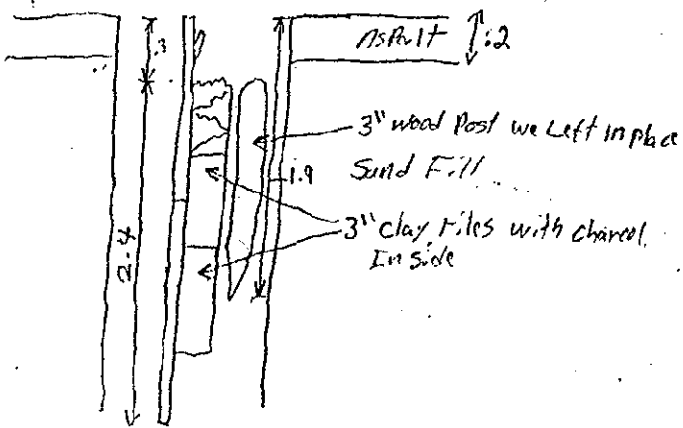 .3
Asphalt
.2
3" wood Post we Left in place
1.9
Sand Fill
3" clay tiles with charcol
Inside
2.4